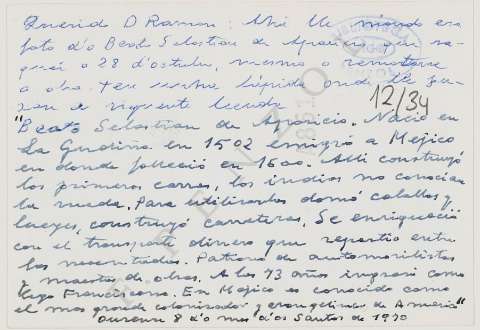 Querido D Ramon: Ahi lle mando esa
foto d'o Beato Sebastian de Aparicio que sa-
quei o 28 d'ostubre, mesmo o rematarse
a oba. Ten unha lápida onde lle pu-
xen a siguente lenda
12/34
"Beato Sebastian de Aparicio. Nació en
La Gudiña en 1502 emigró a Mejico
en donde falleció en 1600. Alli construyó
los primeros carros, los indios no conocian
la rueda. Para utilizarlos domó caballos y
bueyes, construyó carreteras. Se enriqueció
con el transporte dinero que repartio entre
los necesitados. Patrono de automovilistas
y maestro de obras. A los 73 años ingresó como
lego Franciscano. En Mejico es conocido como
el mas grande colonizador y evangelizador de America"
Ourense 8 d'o mes d'os Santos de 1970